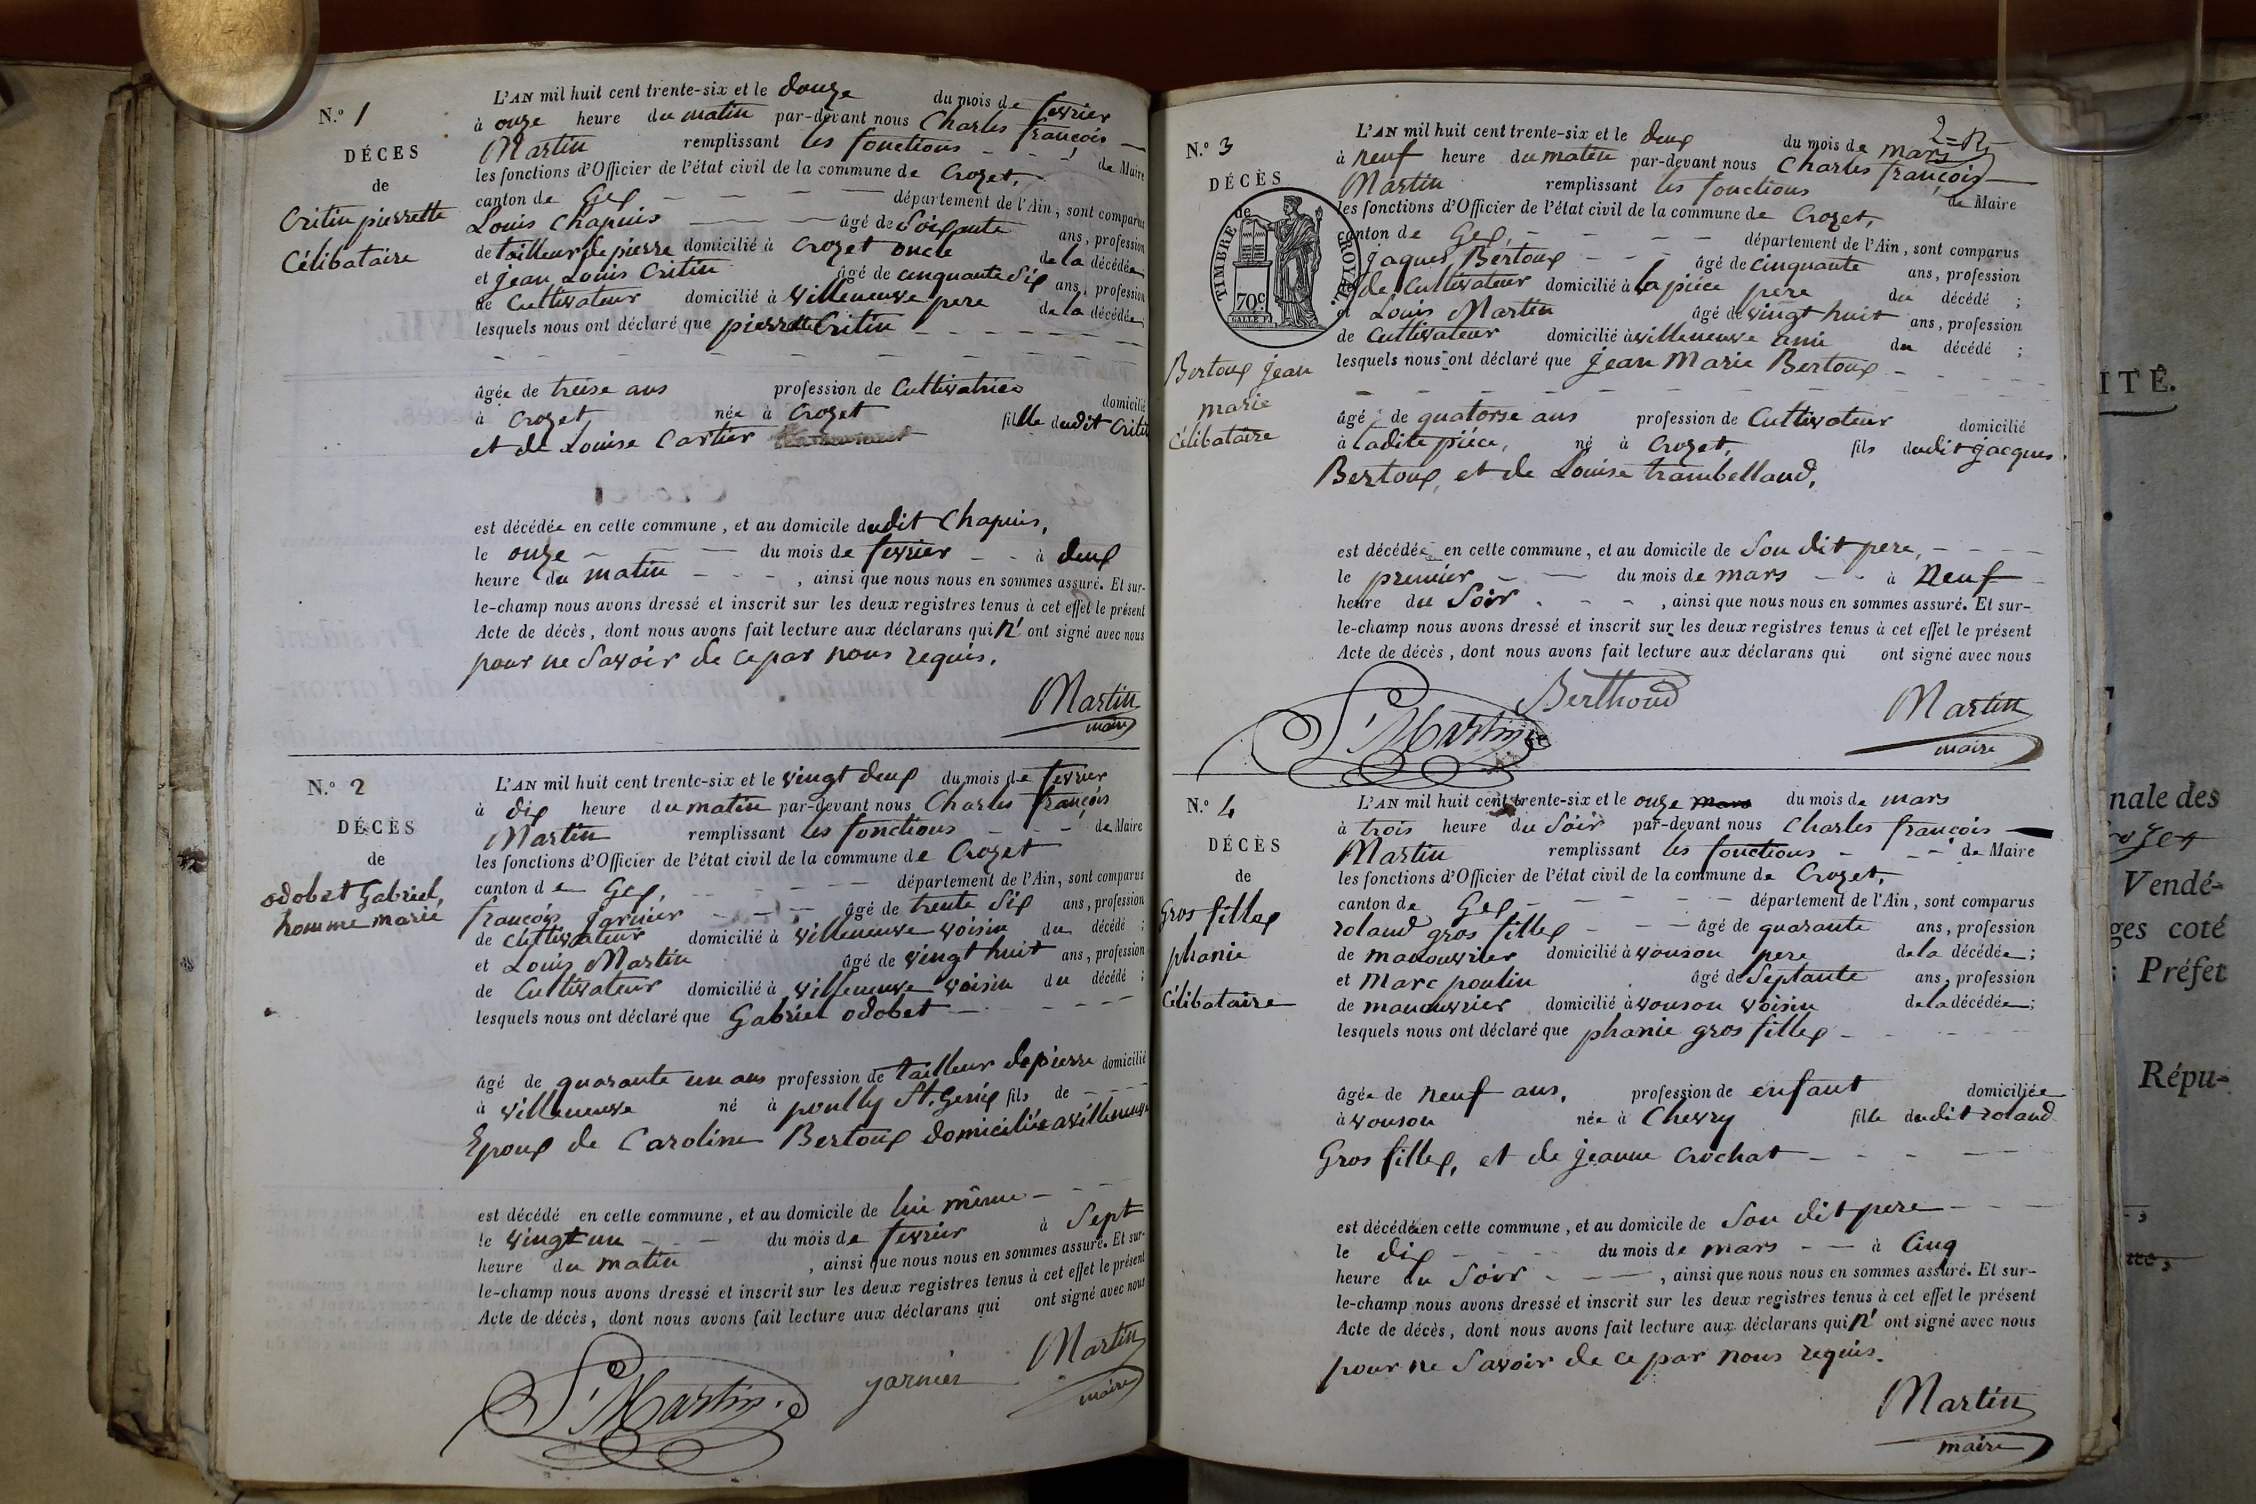 N.º 1
DÉCES
de
Critin pierrette
Célibataire
L'AN mil huit cent trente-six et le douze du mois de fevrier
à onze heure du matin par-devant nous Charles françois
Martin remplissant les fonctions de Maire
les fonctions d'Officier de l'état civil de la commune de Crozet,
canton de Gex département de l'Ain, sont comparus
Louis Chapuis âgé de Soixante ans, profession
de tailleur de pierre domicilié à Crozet oncle de la décédée
et jean Louis Critin âgé de cinquante Six ans, profession
de Cultivateur domicilié à villeneuve pere de la décédée;
lesquels nous ont déclaré que pierrette Critin
âgée de treise ans profession de Cultivatrice domicilié
à Crozet née à Crozet fille dudit Critin
et de Louise Cartier
est décédée en celle commune, et au domicile dudit Chapuis,
le onze du mois de fevrier à deux
heure du matin, ainsi que nous nous en sommes assuré. Et sur-
le-champ nous avons dressé et inscrit sur les deux registres tenus à cet effet le présent
Acte de décès, dont nous avons fait lecture aux déclarans qui n' ont signé avec nous
pour ne Savoir de ce par nous requis.
Martin
maire
N.º 2
DÉCÈS
de
odobet Gabriel,
homme marié
L'AN mil huit cent trente-six et le vingt deux du mois de fevrier
à dix heure du matin par-devant nous Charles françois
Martin remplissant les fonctions de Maire
les fonctions d'Officier de l'état civil de la commune de Crozet
canton de Gex, département de l'Ain, sont comparus
françois garnier âgé de trente Six ans, profession
de cultivateur domicilié à villeneuve voisin du décédé;
et Louis Martin âgé de vingt huit ans, profession
de Cultivateur domicilié à villeneuve voisin du décédé;
lesquels nous ont déclaré que Gabriel odobet
âgé de quarante un ans profession de tailleur de pierre domicilié
à villeneuve né à pouilly St. Genix fils de
Epoux de Caroline Bertoux domiciliée a villeneuve
est décédé en celle commune, et au domicile de lui même
le vingt un du mois de fevrier à Sept
heure du matin, ainsi que nous nous en sommes assuré. Et sur-
le-champ nous avons dressé et inscrit sur les deux registres tenus à cet effet le présent
Acte de décès, dont nous avons fait lecture aux déclarans qui ont signé avec nous
L. Martin. garnier Martin
maire
N.º 3
DÉCÈS
de
TIMBRE ROYAL.
70c
Bertoux jean
marie
Célibataire
L'AN mil huit cent trente-six et le deux du mois de mars
à neuf heure du matin par-devant nous Charles françois
Martin remplissant les fonctions de Maire
les fonctions d'Officier de l'état civil de la commune de Crozet,
canton de Gex, département de l'Ain, sont comparus
jaques Bertoux âgé de cinquante ans, profession
de Cultivateur domicilié à la piéce pere du décédé;
et Louis Martin âgé de vingt huit ans, profession
de Cultivateur domicilié à villeneuve ami du décédé;
lesquels nous ont déclaré que jean Marie Bertoux
âgé de quatorse ans profession de Cultivateur domicilié
à ladite piéce, né à Crozet, fils dudit jacques
Bertoux, et de Louise trambelland,
est décédé en celle commune, et au domicile de Son dit pere,
le premier du mois de mars à Neuf
heure du Soir, ainsi que nous nous en sommes assuré. Et sur-
le-champ nous avons dressé et inscrit sur les deux registres tenus à cet effet le présent
Acte de décès, dont nous avons fait lecture aux déclarans qui ont signé avec nous
L. Martin Berthoud Martin
maire
N.º 4
DÉCÈS
de
Gros fillex
phanie
Célibataire
L'AN mil huit cent trente-six et le onze mars du mois de mars
à trois heure du Soir par-devant nous Charles françois
Martin remplissant les fonctions de Maire
les fonctions d'Officier de l'état civil de la commune de Crozet,
canton de Gex département de l'Ain, sont comparus
roland gros fillex âgé de quarante ans, profession
de manouvrier domicilié à vouson pere de la décédée;
et Marc poulin âgé de Septante ans, profession
de manouvrier domicilié à vouson voisin de la décédée;
lesquels nous ont déclaré que phanie gros fillex
âgée de neuf ans, profession de enfant domiciliée
à vouson née à Chevry fille dudit roland
Gros fillex, et de jeanne Crochat
est décédée en celle commune, et au domicile de Son dit pere
le dix du mois de mars à Cinq
heure du Soir, ainsi que nous nous en sommes assuré. Et sur-
le-champ nous avons dressé et inscrit sur les deux registres tenus à cet effet le présent
Acte de décès, dont nous avons fait lecture aux déclarans qui n' ont signé avec nous
pour ne Savoir de ce par nous requis.
Martin
maire
ITÉ.
nale des
Vendé-
ges coté
Préfet
Répu-